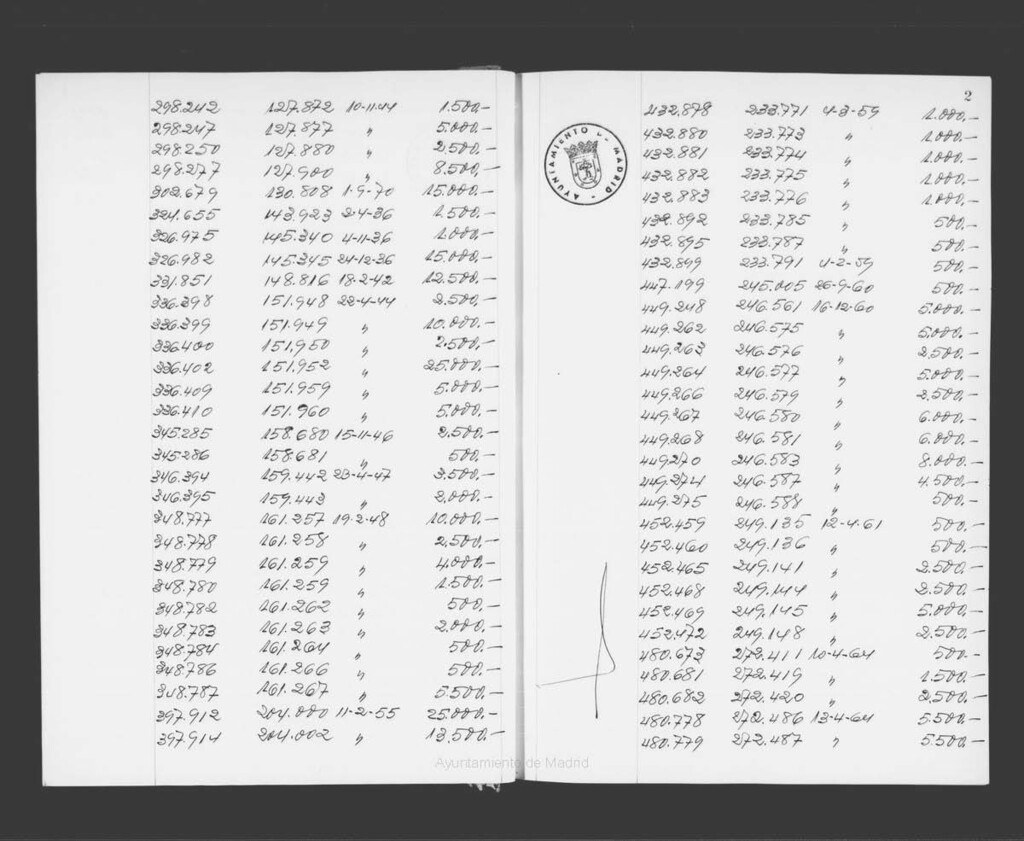 298.242 127.872 10-11-44 1.500.-
298.247 127.877 〃 5.000.-
298.250 127.880 〃 2.500.-
298.277 127.900 〃 8.500.-
302.679 130.808 1-9-70 15.000.-
324.655 143.923 2-4-36 1.500.-
326.975 145.340 4-11-36 1.000.-
326.982 145.345 24-12-36 15.000.-
331.851 148.816 18-2-42 12.500.-
336.398 151.948 22-4-44 2.500.-
336.399 151.949 〃 10.000.-
336.400 151.950 〃 2.500.-
336.402 151.952 〃 25.000.-
336.409 151.959 〃 5.000.-
336.410 151.960 〃 5.000.-
345.285 158.680 15-11-46 2.500.-
345.286 158.681 〃 500.-
346.394 159.442 23-4-47 3.500.-
346.395 159.443 〃 2.000.-
348.777 161.257 19-2-48 10.000.-
348.778 161.258 〃 2.500.-
348.779 161.259 〃 4.000.-
348.780 161.259 〃 1.500.-
348.782 161.262 〃 500.-
348.783 161.263 〃 2.000.-
348.784 161.264 〃 500.-
348.786 161.266 〃 500.-
348.787 161.267 〃 5.500.-
397.912 204.000 11-2-55 25.000.-
397.914 204.002 〃 13.500.-
2
AYUNTAMIENTO DE MADRID
432.879 233.771 4-3-59 1.000.-
432.880 233.773 〃 1.000.-
432.881 233.774 〃 1.000.-
432.882 233.775 〃 1.000.-
432.883 233.776 〃 1.000.-
432.892 233.785 〃 500.-
432.895 233.787 〃 500.-
432.899 233.791 4-2-59 500.-
447.199 245.005 26-9-60 500.-
449.248 246.561 16-12-60 5.000.-
449.262 246.575 〃 5.000.-
449.263 246.576 〃 2.500.-
449.264 246.577 〃 5.000.-
449.266 246.579 〃 2.500.-
449.267 246.580 〃 6.000.-
449.268 246.581 〃 6.000.-
449.270 246.583 〃 8.000.-
449.274 246.587 〃 4.500.-
449.275 246.588 〃 500.-
452.459 249.135 12-4-61 500.-
452.460 249.136 〃 500.-
452.465 249.141 〃 2.500.-
452.468 249.144 〃 2.500.-
452.469 249.145 〃 5.000.-
452.472 249.148 〃 2.500.-
480.673 272.411 10-4-64 500.-
480.681 272.419 〃 1.500.-
480.682 272.420 〃 2.500.-
480.778 272.486 13-4-64 5.500.-
480.779 272.487 〃 5.500.-
Ayuntamiento de Madrid